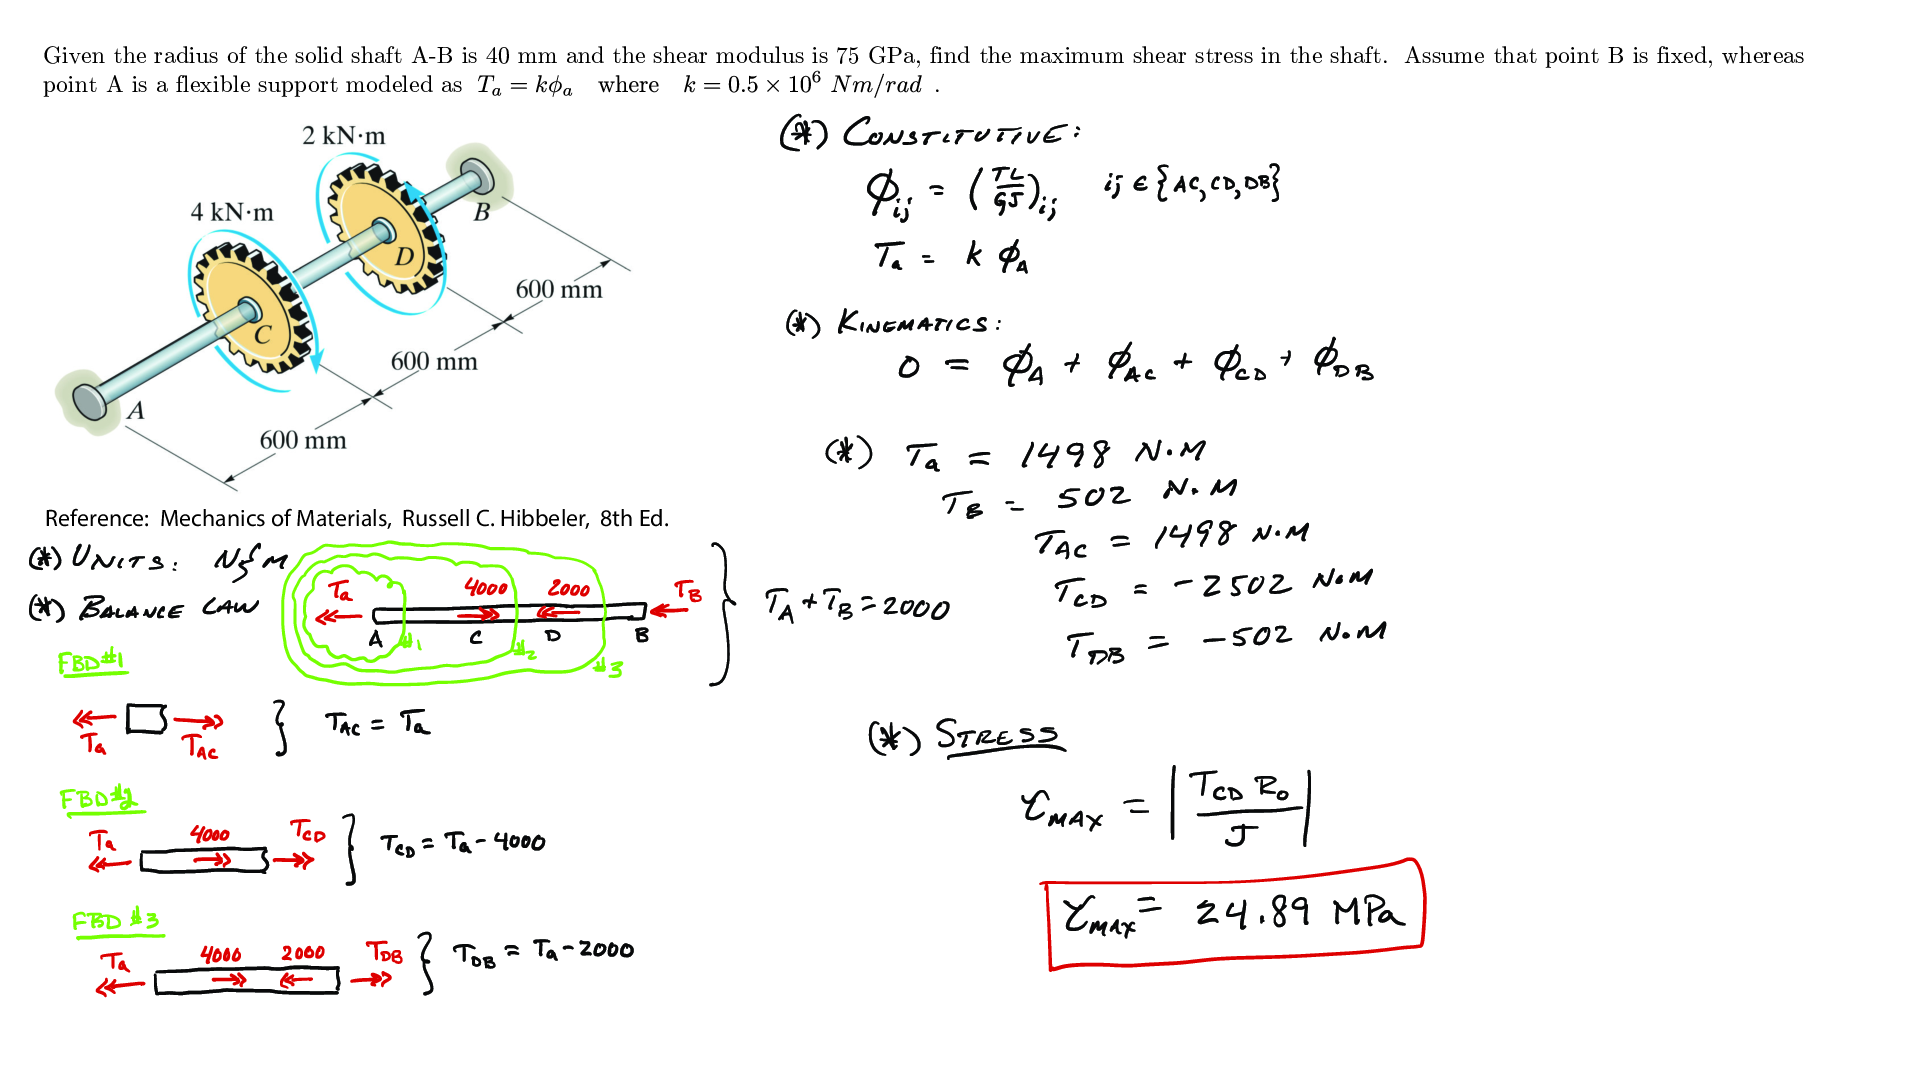 Given the radius of the solid shaft A-B is 40 mm and the shear modulus is 75 GPa, find the maximum shear stress in the shaft. Assume that point B is fixed, whereas
point A is a flexible support modeled as T_a = kϕ_a where k = 0.5 × 10^6 Nm/rad .
2 kN·m
4 kN·m
B
D
C
A
600 mm
600 mm
600 mm
Reference: Mechanics of Materials, Russell C. Hibbeler, 8th Ed.
(*) UNITS: N & M
(*) BALANCE LAW
Ta 4000 2000 TB
A C D B
#1 #2 #3
} TA + TB = 2000
FBD#1
Ta TAC } TAC = Ta
FBD#2
Ta 4000 TCD } TCD = Ta - 4000
FBD #3
Ta 4000 2000 TDB } TDB = Ta - 2000
(*) CONSTITUTIVE:
ϕij = (TL/GJ)ij ij ∈ {AC, CD, DB}
Ta = k ϕA
(*) KINEMATICS:
0 = ϕA + ϕAC + ϕCD + ϕDB
(*) Ta = 1498 N·M
TB = 502 N·M
TAC = 1498 N·M
TCD = -2502 N·M
TDB = -502 N·M
(*) STRESS
τMAX = |TCD Ro / J|
τMAX = 24.89 MPa